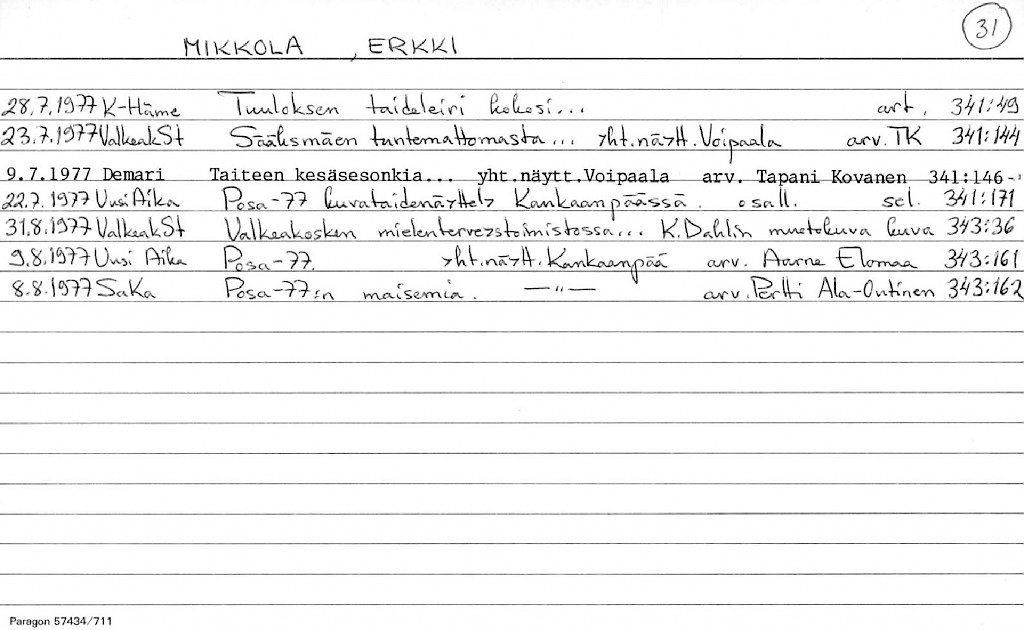 31
MIKKOLA , ERKKI
28.7.1977 K-Häme Tuuloksen taideleiri kokosi... art. 341:49
23.7.1977 ValkeakSt Sääksmäen tuntemattomasta... yht.näytt. Voipaala arv. TK 341:144
9.7.1977 Demari Taiteen kesäsesonkia... yht.näytt.Voipaala arv. Tapani Kovanen 341:146-
22.7.1977 Uusi Aika Posa-77 kuvataidenäyttely Kankaanpäässä. osall. sel. 341:171
31.8.1977 ValkeakSt Valkeakosken mielenterveystoimistossa... K.Dahlin muotokuva kuva 343:36
9.8.1977 Uusi Aika Posa-77. yht.näytt.Kankaanpää arv. Aarne Elomaa 343:161
8.8.1977 SaKa Posa-77:n maisemia. —"— arv. Pertti Ala-Outinen 343:162
Paragon 57434/711